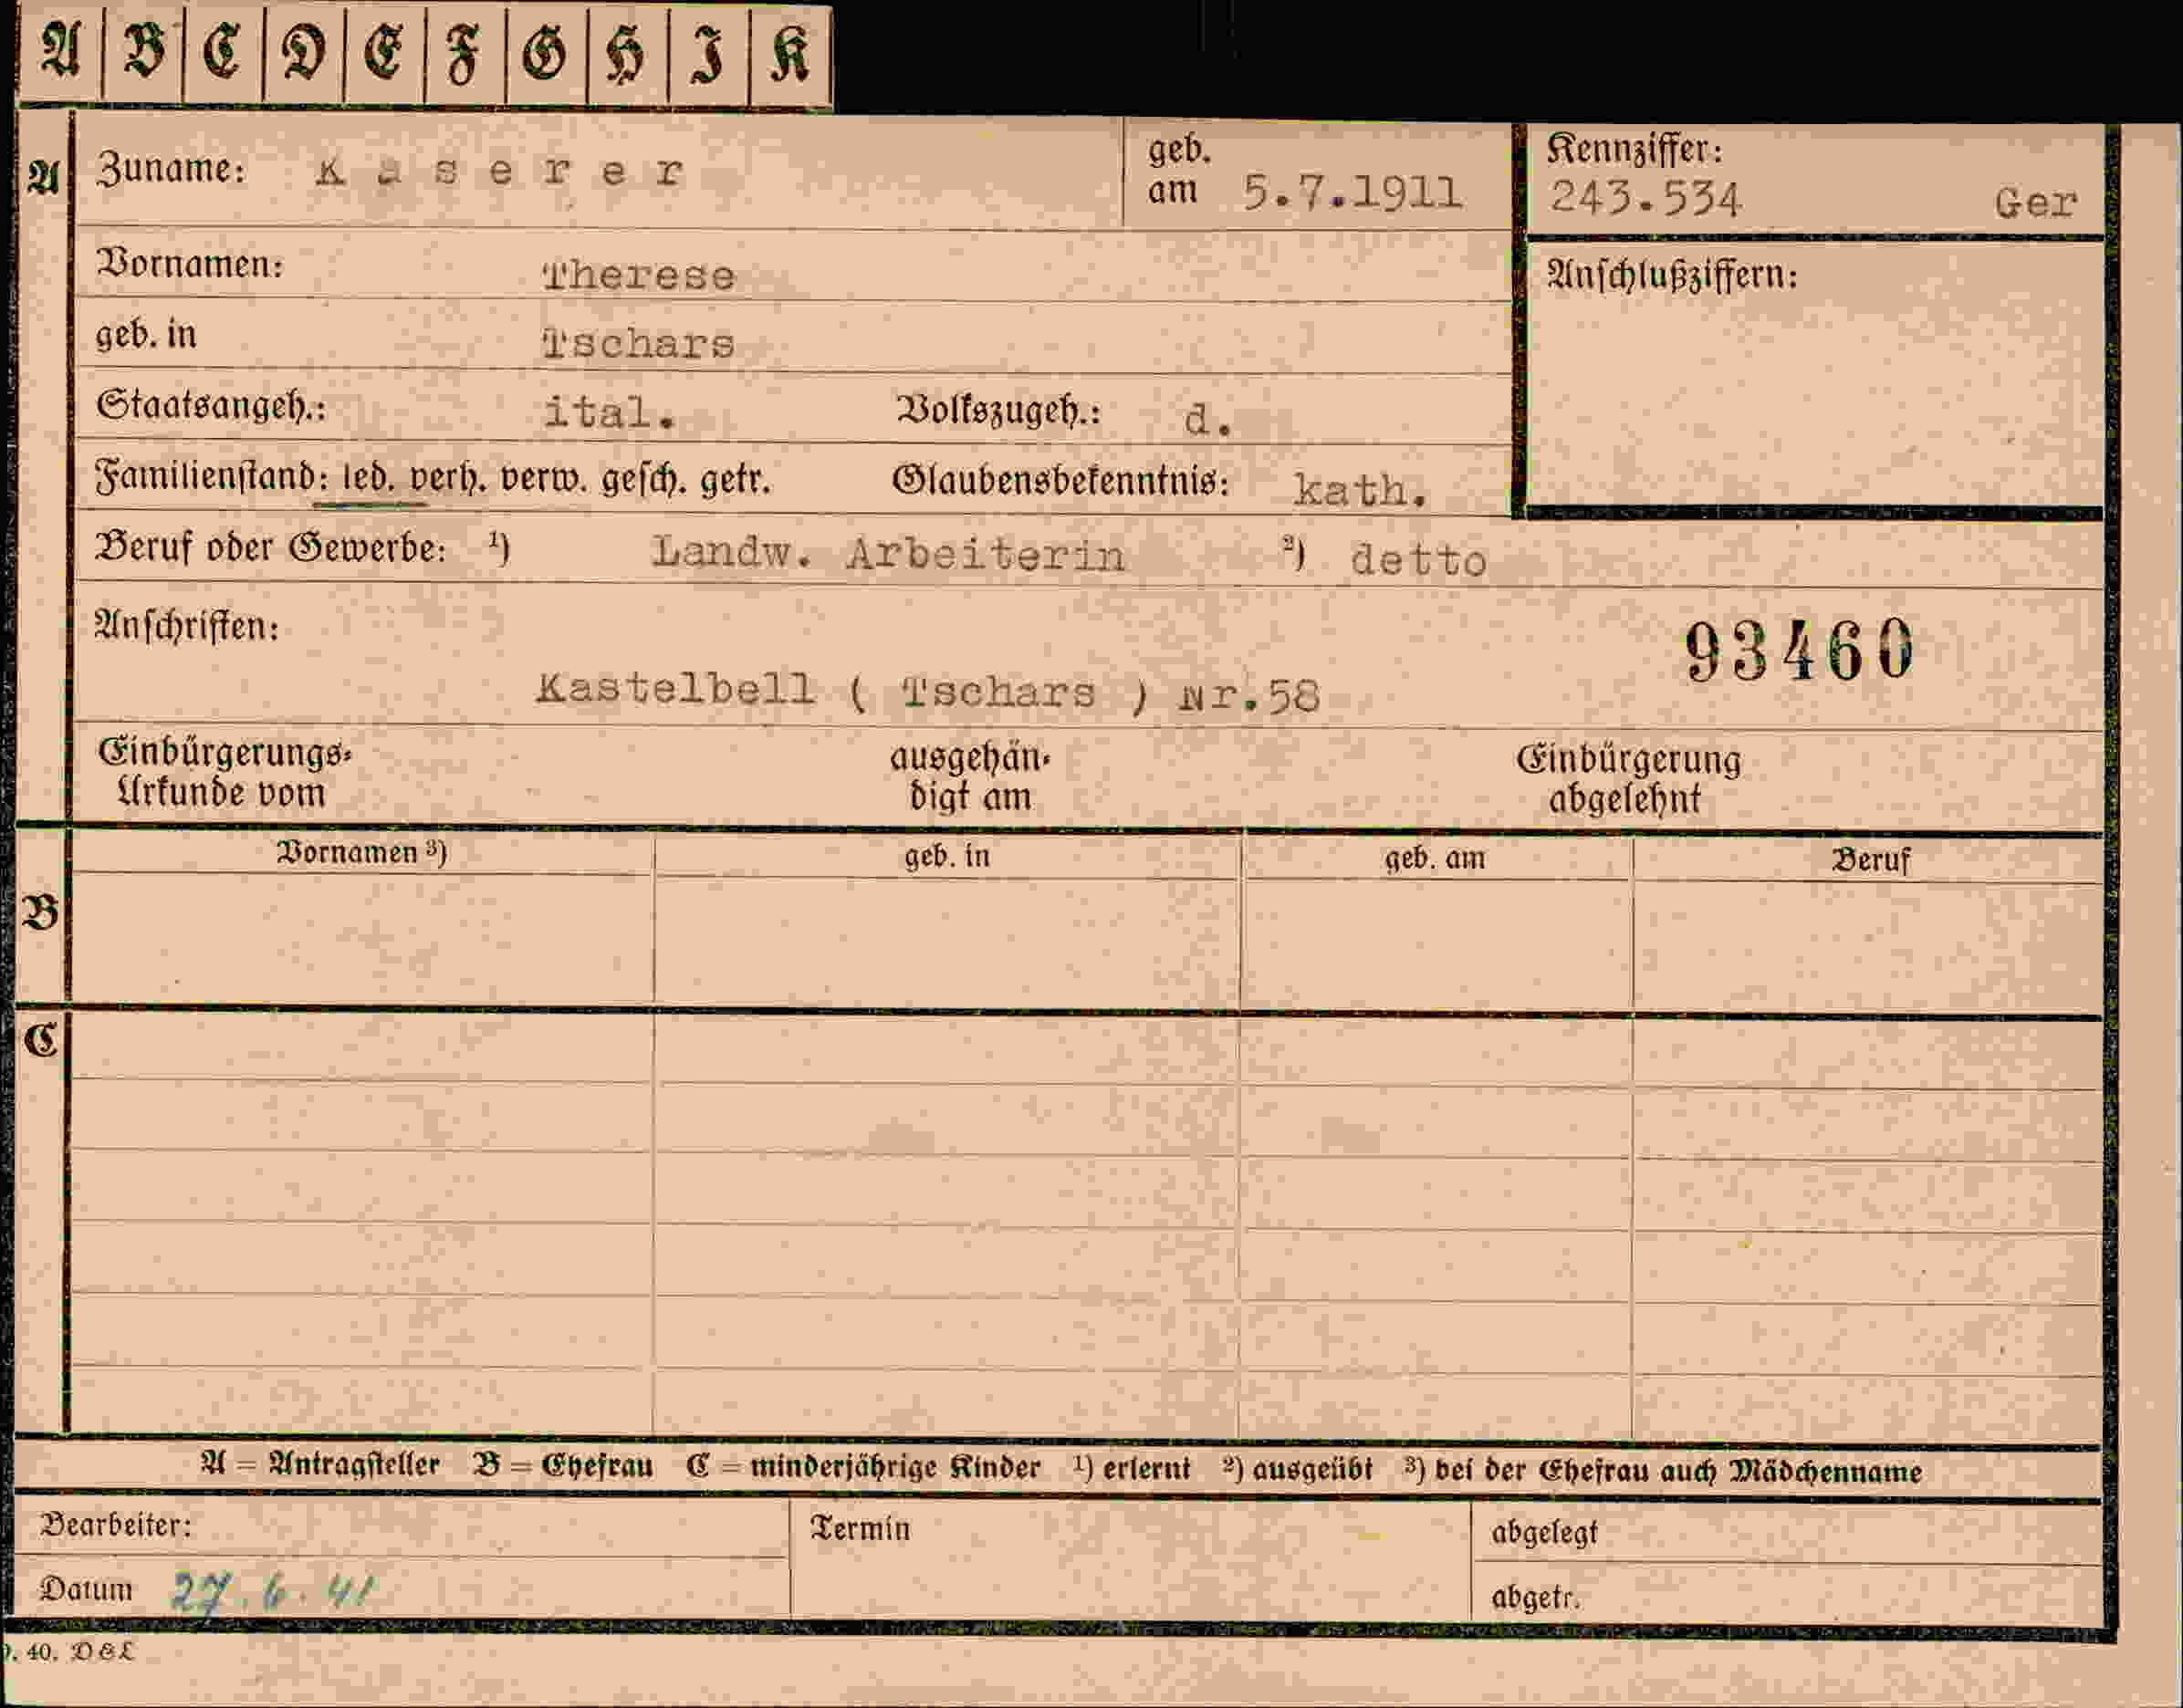 A B C D E F G H I K
A Zuname: Kaserer geb. am 5.7.1911 Kennziffer: 243.534 Ger
Vornamen: Therese Anschlußziffern:
geb. in Tschars
Staatsangeh.: ital. Volkszugeh.: d.
Familienstand: led. verh. verw. gesch. getr. Glaubensbekenntnis: kath.
Beruf oder Gewerbe: ¹) Landw. Arbeiterin ²) detto
Anschriften: 93460
Kastelbell ( Tschars ) Nr.58
Einbürgerungs- ausgehän- Einbürgerung
Urkunde vom digt am abgelehnt
Vornamen ³) geb. in geb. am Beruf
B
C
A = Antragsteller B = Ehefrau C = minderjährige Kinder ¹) erlernt ²) ausgeübt ³) bei der Ehefrau auch Mädchenname
Bearbeiter: Termin abgelegt
Datum 27.6.41 abgetr.
40. D&L